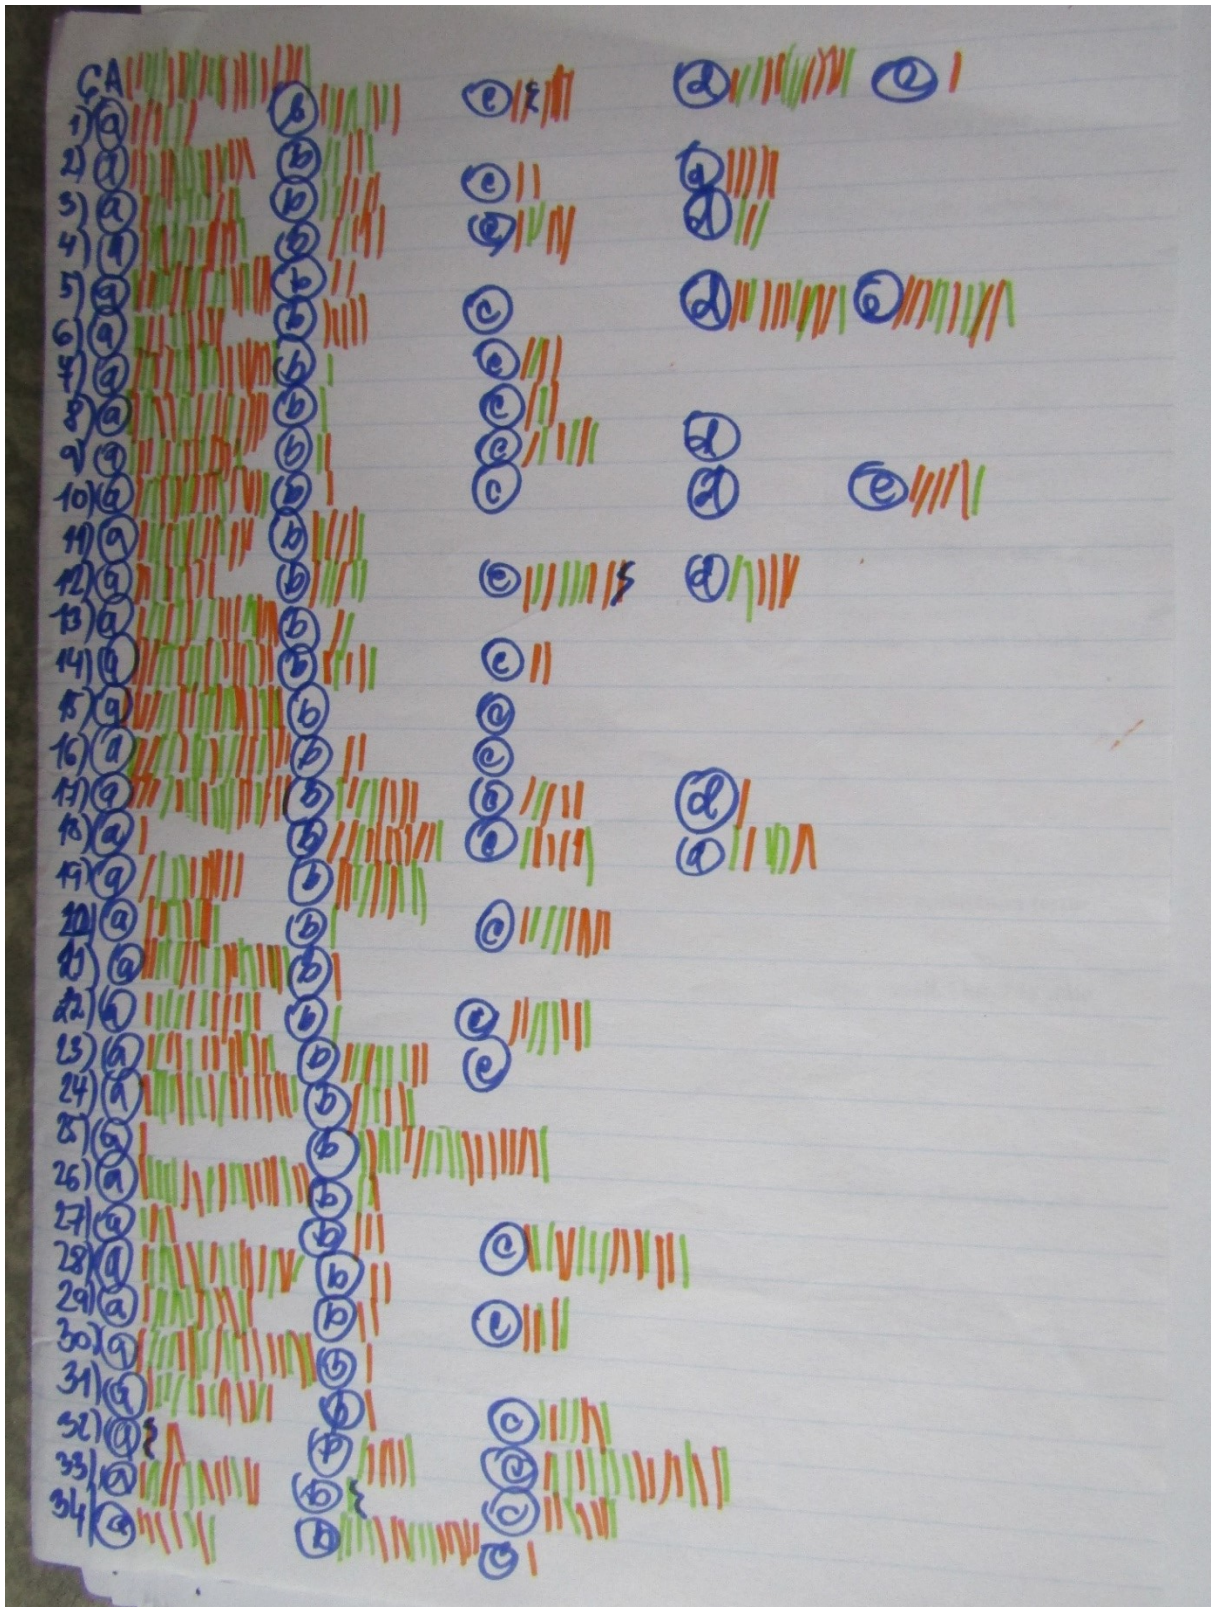 CA
1) a b c d e
2) a b
3) a b c d
4) a b c d
5) a b
6) a b c d e
7) a b c
8) a b c
9) a b c d
10) a b c d e
11) a b
12) a b c d
13) a b
14) a b c
15) a b c
16) a b c
17) a b c d
18) a b c d
19) a b
20) a b c
21) a b
22) a b c
23) a b c
24) a b
25) a b
26) a b
27) a b c
28) a b
29) a b c
30) a b
31) a b c
32) a b c
33) a b c
34) a b c